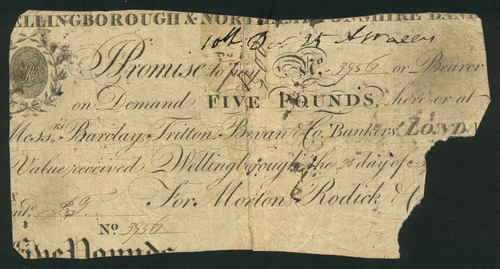 ELLINGBOROUGH & NORTHAMPTONSHIRE BANK
10th Dec 25
I Promise to pay No. 3956 or Bearer
on Demand FIVE POUNDS, here or at
Messrs Barclay, Tritton Bevan & Co. Bankers, LOND
Value received Wellingborough the 26 day of
For Morton Rodick & C
Entd.
No 3956
Five Pounds